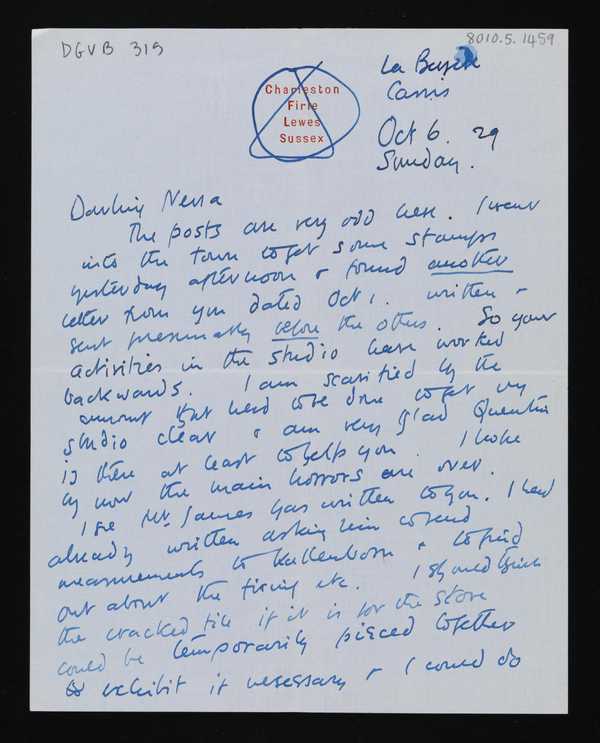 DGVB 319
8010.5.1459
Charleston
Firle
Lewes
Sussex
La Bergère
Cassis
Oct 6. 29
Sunday.
Darling Nessa
The posts are very odd here. I went
into the town to get some stamps
yesterday afternoon & found another
letter from you dated Oct 1. written &
sent presumably before the others. So your
activities in the studio have worked
backwards. I am scarified by the
amount that had to be done to get my
studio clear & am very glad Quentin
is there at least to help you. I hope
by now the main horrors are over.
I see Mr. James has written to you. I had
already written asking him to send
measurements to Kallenborn & to find
out about the firing etc. I should think
the cracked tile if it is for the stove
could be temporarily pieced together
to exhibit if necessary & I could do